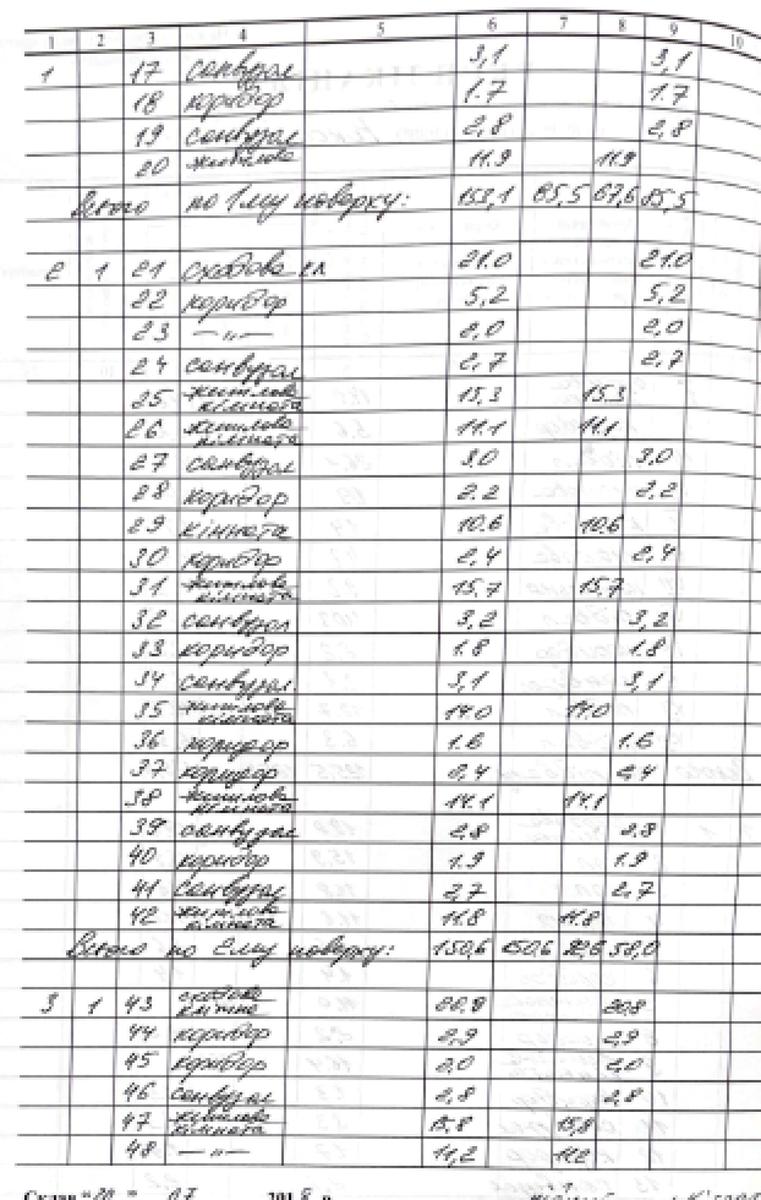 1 2 3 4 5 6 7 8 9 10
1 17 санвузол 3,1 3,1
18 коридор 1.7 1.7
19 санвузол 2,8 2,8
20 житлова 11.9 11.9
Всього по 1му поверху: 153,1 85,5 67,6 85,5
2 1 21 сходова кл 21.0 21.0
22 коридор 5,2 5,2
23 —„— 2,0 2,0
24 санвузол 2,7 2,7
25 житлова кімната 15.3 15.3
26 житлова кімната 11.1 11.1
27 санвузол 3,0 3,0
28 коридор 2.2 2,2
29 кімната 10.6 10.6
30 коридор 2,4 2,4
31 житлова кімната 15.7 15.7
32 санвузол 3,2 3,2
33 коридор 1.8 1.8
34 санвузол 3,1 3,1
35 житлова кімната 14.0 14.0
36 коридор 1.6 1.6
37 коридор 2,4 2,4
38 житлова кімната 14.1 14.1
39 санвузол 2,8 2,8
40 коридор 1.9 1.9
41 санвузол 2,7 2,7
42 житлова кімната 11.8 11.8
Всього по 2му поверху: 150,6 150,6 92,6 58,0
3 1 43 сходова клітина 20,8 20,8
44 коридор 2,9 2,9
45 коридор 2,0 2,0
46 санвузол 2,8 2,8
47 житлова кімната 15,8 15,8
48 —„— 11,2 11.2